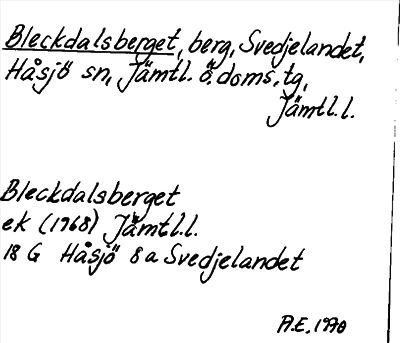 Bleckdalsberget, berg, Svedjelandet,
Håsjö sn, Jämtl. ö. doms. tg,
Jämtl. l.
Bleckdalsberget
ek (1968) Jämtl.l.
18 G Håsjö 8a Svedjelandet
A.E. 1970